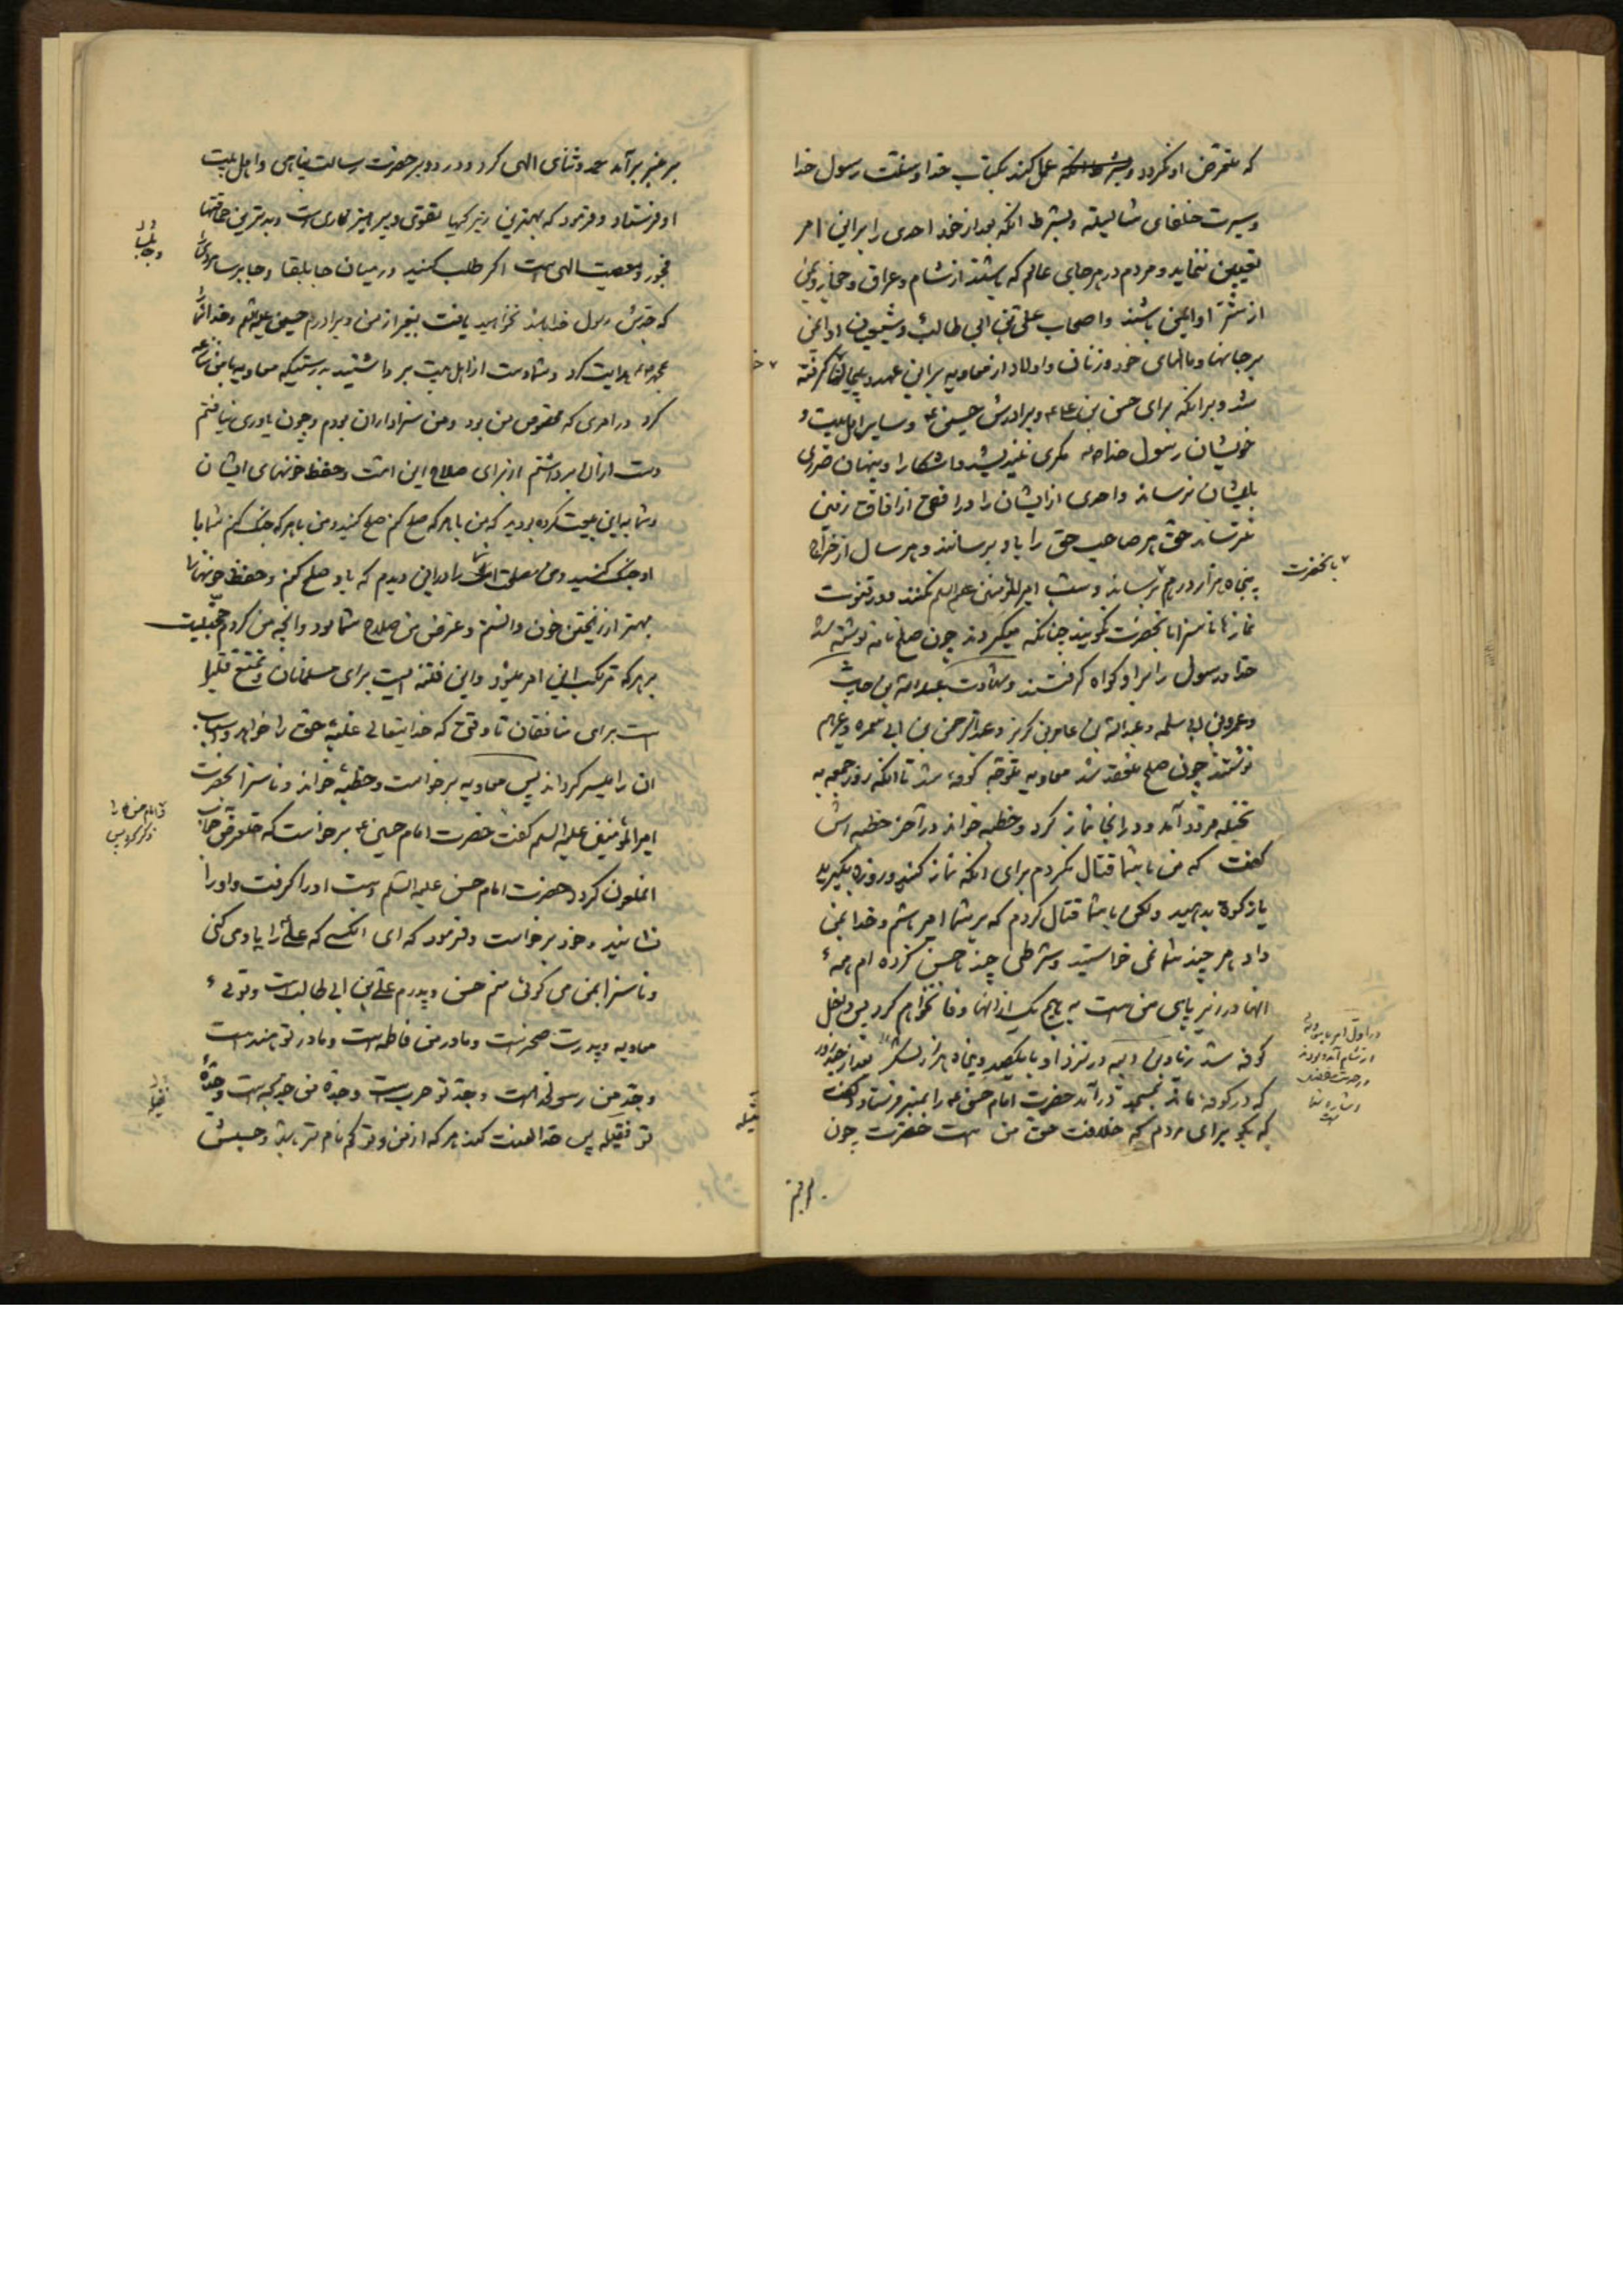 که متعرض او نگردد بشرط آنکه عمل کند بکتاب خدا و سنت رسول خدا
و سیرت خلفای شایسته و بشرط انکه بعد از خود احدی را براین امر
تعیین ننماید و مردم در هر جای عالم که باشند از شام و عراق و حجاز و یمن
از شر او ایمن باشند و اصحاب علی بن ابی طالب و شیعیان او ایمن
بر جانها و مالهای خود و زنان و اولاد از معاویه براین عهد و پیمان گرفته
شد و برانکه برای حسن بن علی و برادرش حسین و سایر اهل بیت و
خویشان رسول خدا مکری نیندیشد و اشکارا و پنهان ضرری
بایشان نرساند و احدی از ایشان را در افقی از افاق زمین
نترساند حق هر صاحب حق را باو برسانند و هر سال از خراج
پنجاه هزار درهم برساند و سب امیرالمؤمنین علیه السلم نکنند و در قنوت
نمازها ناسزا بانحضرت نگویند چنانکه میکردند چون صلح نامه نوشته شد
خدا و رسول را براو گواه گرفتند و شهادت عبدالله بن حارث
و عمرو بن ابی سلمه و عبدالله بن عامر بن کریز و عبدالرحمن بن ابی سمره و غیرهم
نوشتند چون صلح منعقد شد معاویه متوجه کوفه شد تا انکه روز جمعه به
نخیله فرود آمد و درانجا نماز کرد و خطبه خواند در آخر خطبه اش
گفت که من با شما قتال نکردم برای انکه نماز کنید و روزه بگیرید
یا زکوة بدهید ولکن با شما قتال کردم که بر شما امیر باشم و خدا بمن
داد هر چند شما نمی خواستید و شرطی چند با حسن کرده ام همهٔ
انها در زیر پای من است به هیچ یک از انها وفا نخواهم کرد پس داخل
کوفه شد
که در کوفه ماند بمسجد درآمد حضرت امام حسن را بمنبر فرستاد و گفت
که بگو برای مردم که خلافت حق من است حضرت چون
بر منبر
بانحضرت
بر منبر برآمد حمد و ثنای الهی کرد و درود بر حضرت رسالت پناهی و اهل بیت
او فرستاد و فرمود که بهترین زیرکیها تقوی و پرهیزکاری است و بدترین حماقتها
فجور و معصیت الهی است اگر طلب کنید در میان جابلقا و جابرسا مردی
که جدش رسول خدا باشد نخواهید یافت بغیر از من و برادرم حسین و خدا شما را
بمحمد هدایت کرد و شما دست از اهل بیت برداشتید بدرستیکه معاویه با من منازعه
کرد در امری که مخصوص من بود و من سزاوار ان بودم و چون یاوری نیافتم
دست از ان برداشتم از برای صلاح این امت و حفظ خونهای ایشان
و شما با من بیعت کرده بودید که من با هر که صلح کنم صلح کنید و من با هر که جنگ کنم شما با
او جنگ کنید و من مصلحت امت را دراین دیدم که باو صلح کنم و حفظ خونها را
بهتر از ریختن خون دانستم و غرض من صلاح شما بود و انچه من کردم حجتیست
بر هر که مرتکب این امر میشود و این فتنه ایست برای مسلمانان و تمتع قلیل
است برای منافقان تا وقتی که خدایتعالی غلبه حق را خواهد و اسباب
ان را میسر گرداند پس معاویه برخواست و خطبه خواند و ناسزا بحضرت
امیرالمؤمنین علیه السلم گفت حضرت امام حسین برخواست که
انملعون گردد حضرت امام حسن علیه السلم دست او را گرفت و او را
نشانید و خود برخواست و فرمود که ای انکسی که علی را یاد می کنی
و ناسزا بمن می گوئی منم حسن و پدرم علی بن ابی طالب است و توئی
معاویه و پدرت صخر است و مادر من فاطمه است و مادر تو هند است
و جد من رسول خدا است و جد تو حرب است و جدهٔ من خدیجه است و جدهٔ
تو فتیله پس خدا لعنت کند هر که از من و تو گم نام تر باشد و حسبش